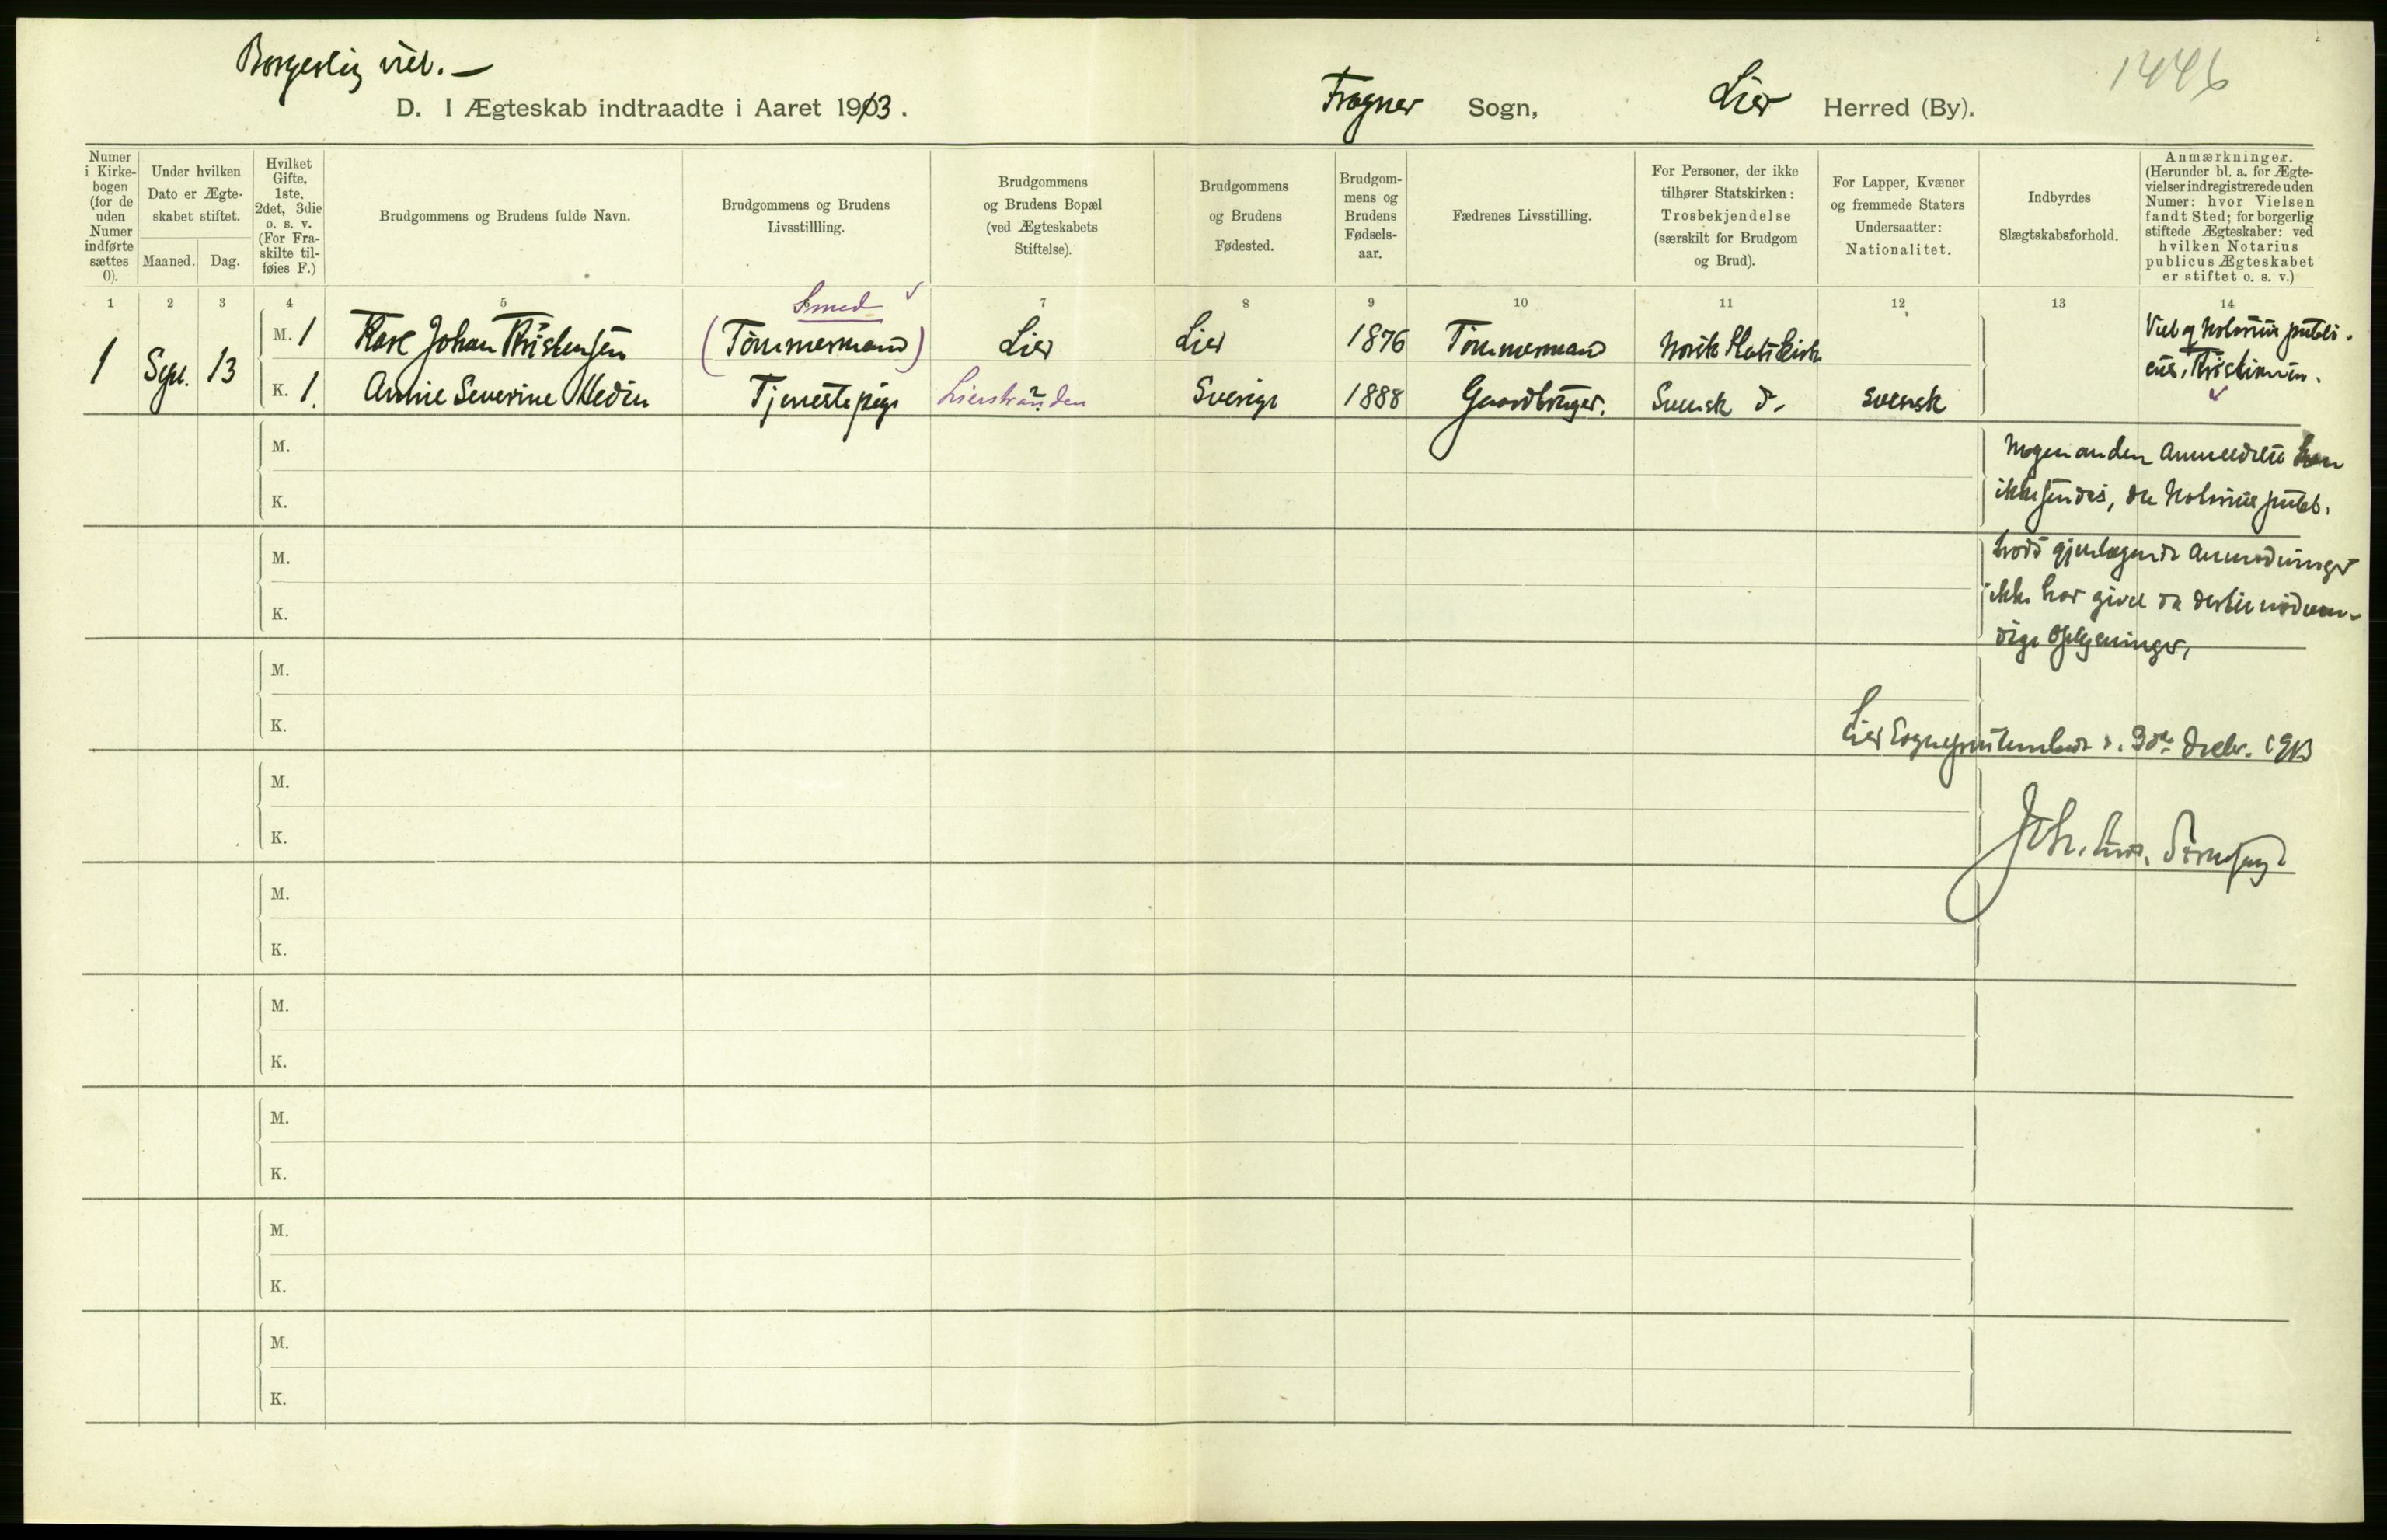 Borgerlig viet. —
1446
D. I Ægteskab indtraadte i Aaret 1913.
Frogner Sogn, Lier Herred (By).
Numer i Kirkebogen (for de uden Numer indførte sættes 0).
Under hvilken Dato er Ægteskabet stiftet.
Maaned. Dag.
Hvilket Gifte, 1ste, 2det, 3die o. s. v. (For Fraskilte tilføies F.)
Brudgommens og Brudens fulde Navn.
Brudgommens og Brudens Livsstillling.
Brudgommens og Brudens Bopæl (ved Ægteskabets Stiftelse).
Brudgommens og Brudens Fødested.
Brudgommens og Brudens Fødselsaar.
Fædrenes Livsstilling.
For Personer, der ikke tilhører Statskirken: Trosbekjendelse (særskilt for Brudgom og Brud).
For Lapper, Kvæner og fremmede Staters Undersaatter: Nationalitet.
Indbyrdes Slægtskabsforhold.
Anmærkninger. (Herunder bl. a. for Ægtevielser indregistrerede uden Numer: hvor Vielsen fandt Sted; for borgerlig stiftede Ægteskaber: ved hvilken Notarius publicus Ægteskabet er stiftet o. s. v.)
1 2 3 4 5 6 7 8 9 10 11 12 13 14
Smed
1 Sept. 13
M. 1 Karl Johan Kristensen (Tömmermand) Lier Lier 1876 Tömmermand Norsk Statskirke
K. 1. Annie Severine Hedin Tjenestepige Lierstranden Sverige 1888 Gaardbruger. Svensk do svensk
Viet af Notarius publicus, Kristiania.
Nogen anden Anmeldelse kan
ikke sendes, da Notarius publ.
trods gjentagende Anmodninger
ikke har givet de dertil nödven-
dige Oplysninger,
Lier Sogneprestembede d. 9de Decbr. 1913
Joh.
M.
K.
M.
K.
M.
K.
M.
K.
M.
K.
M.
K.
M.
K.
M.
K.
M.
K.